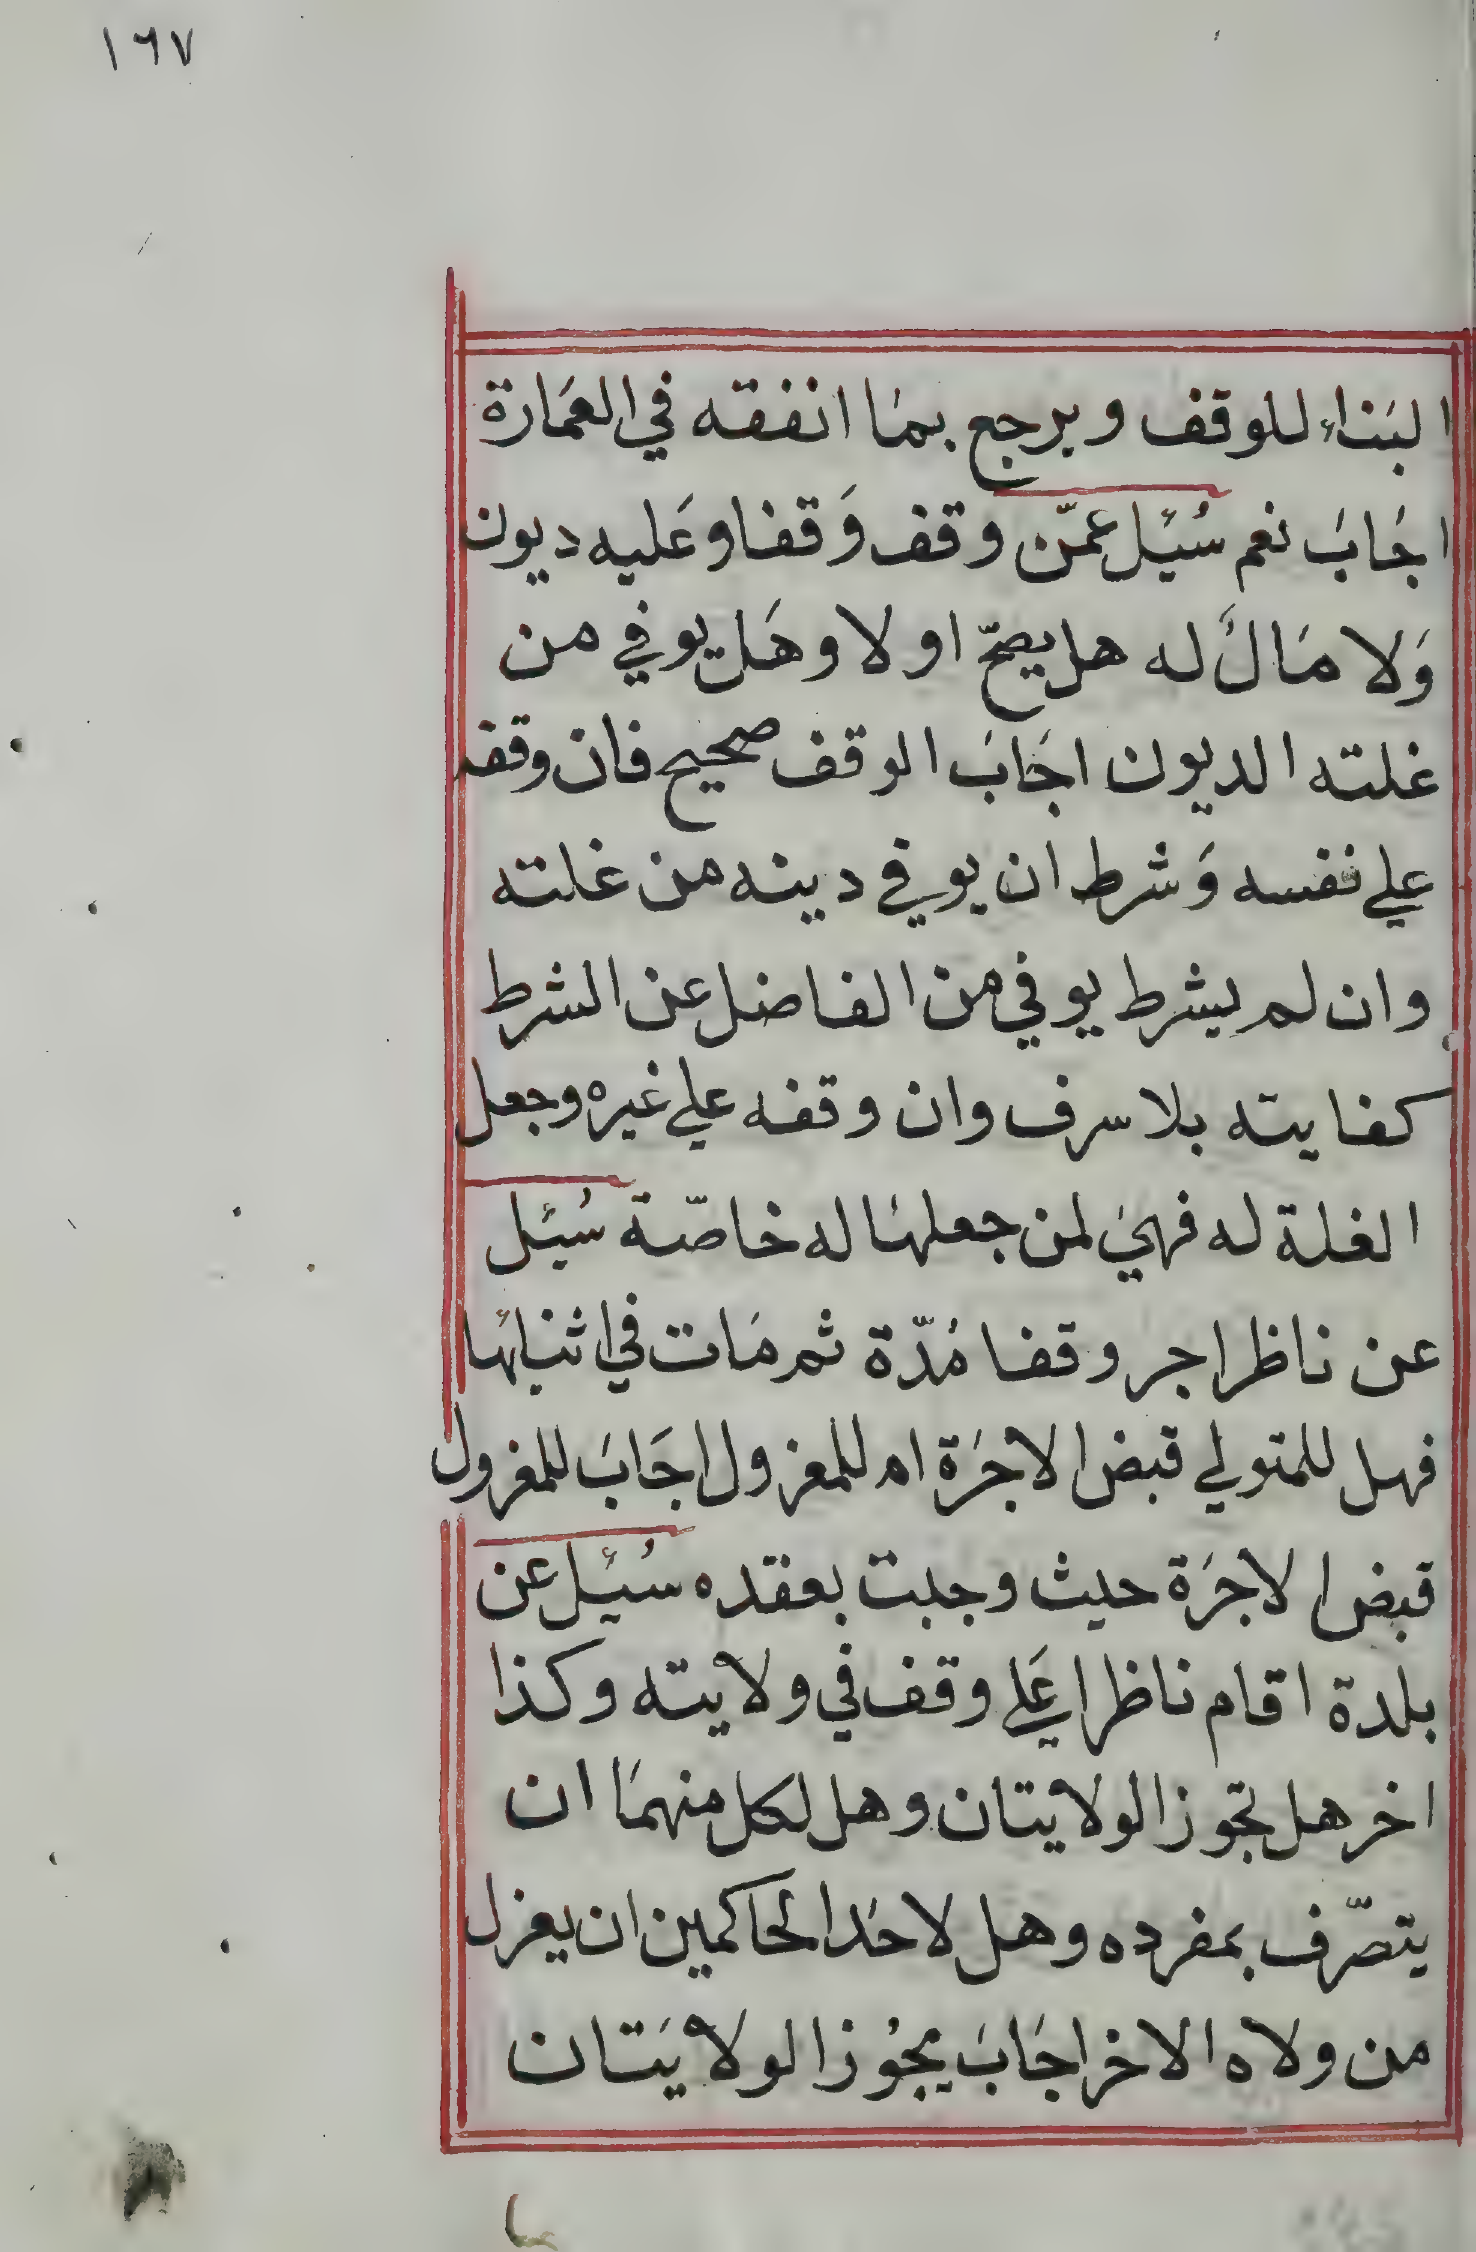 ١٦٧
البناء للوقف ويرجع بما انفقه في العمارة
اجاب نعم سُئل عمّن وقف وقفا وعليه ديون
ولا مال له هل يصحّ او لا وهل يوفي من
غلته الديون اجاب الوقف صحيح فان وقفه
علي نفسه وشرط ان يوفي دينه من غلته
وان لم يشرط يوفي من الفاضل عن الشرط
كفايته بلا سرف وان وقفه علي غيره وجعل
الغلة له فهي لمن جعلها له خاصّة سُئل
عن ناظر اجر وقفا مُدّة ثم مات في اثنائها
فهل للمتولي قبض الاجرة ام للمعزول اجاب للمعزول
قبض الاجرة حيث وجبت بعقده سُئل عن
بلدة اقام ناظرا علي وقف في ولايته وكذا
اخر هل تجوز الولايتان وهل لكل منهما ان
يتصرّف بمفرده وهل لاحد الحاكمين ان يعزل
من ولاه الاخر اجاب يجُوز الولايتان